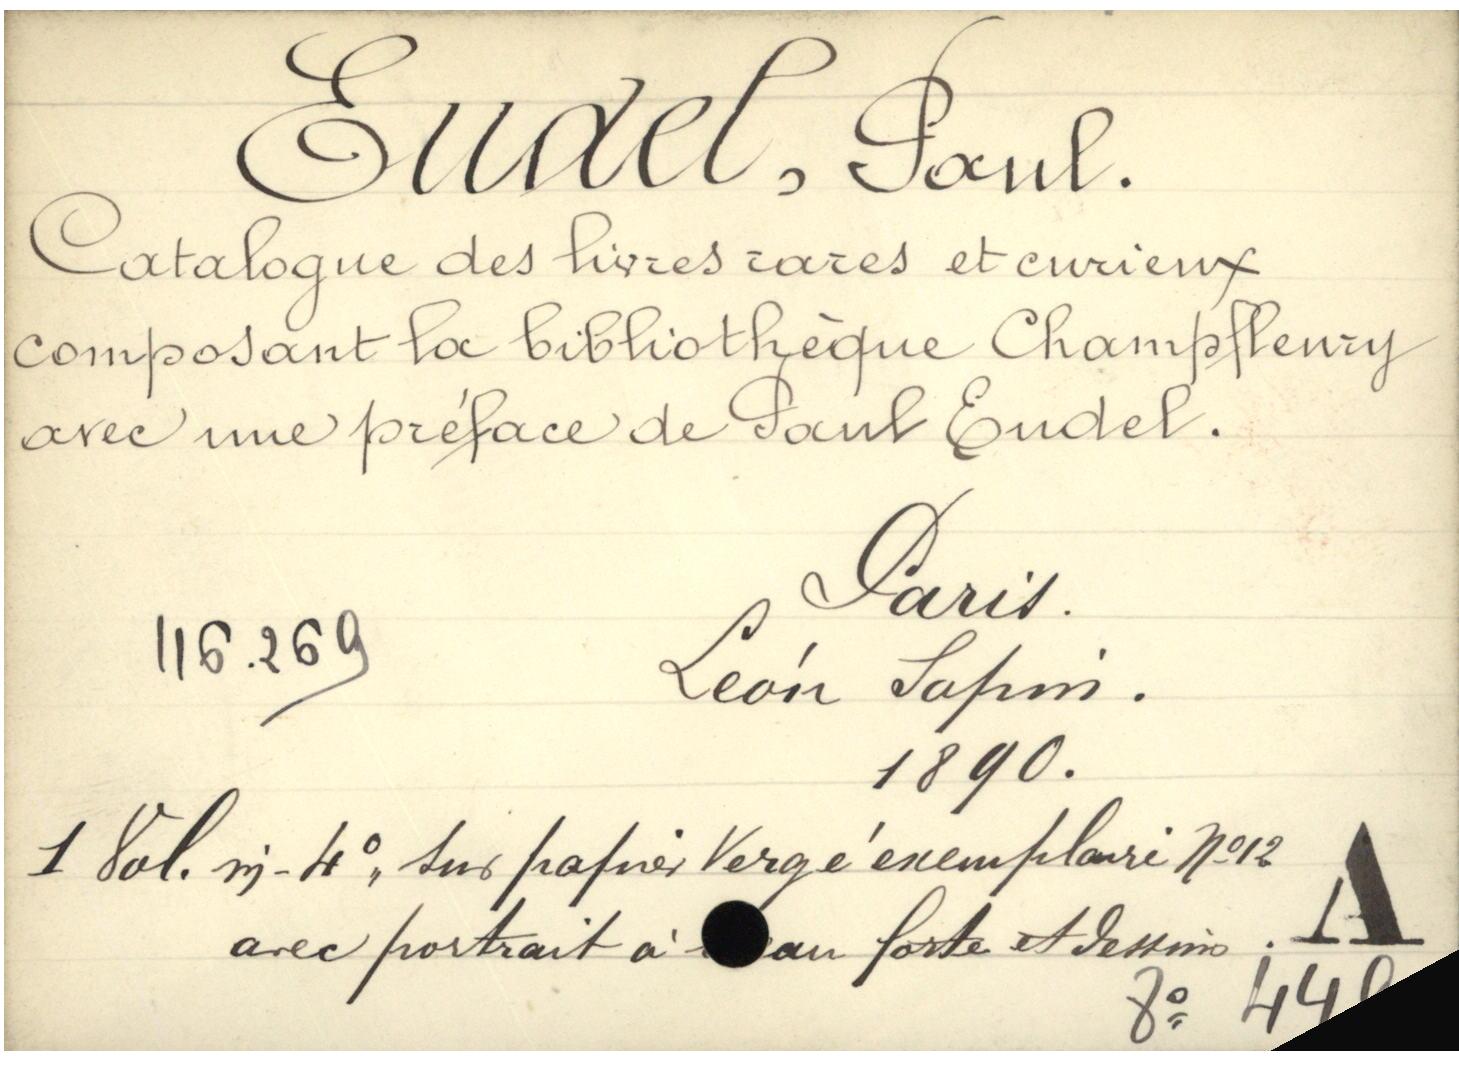 Eudel, Paul.
Catalogue des livres rares et curieux
composant la bibliothèque Champfleury
avec une préface de Paul Eudel.
Paris.
116.269
León Sapin.
1890.
1 Vol. in-4°, sur papier Vergé exemplaire Nº 12
avec portrait à eau forte et dessins.
A
8º